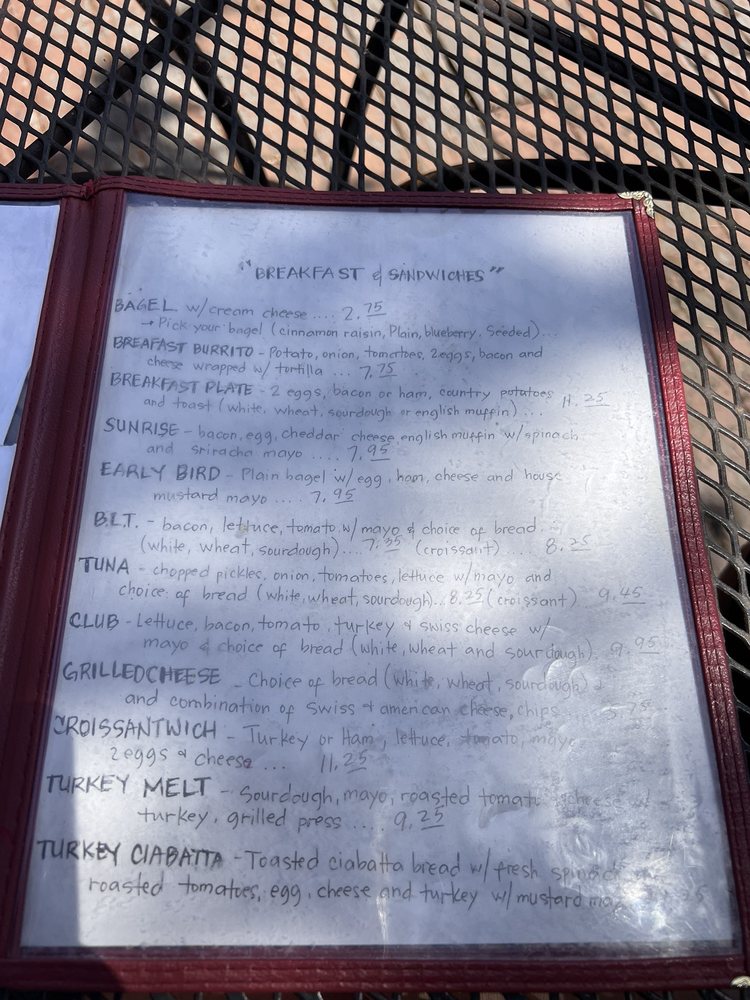 "BREAKFAST & SANDWICHES"
BAGEL w/cream cheese .... 2.75
→ Pick your bagel (cinnamon raisin, Plain, blueberry, Seeded)...
BREAFAST BURRITO - Potato, onion, tomatoes, 2eggs, bacon and
cheese wrapped w/ tortilla ... 7.75
BREAKFAST PLATE - 2 eggs, bacon or ham, country potatoes
and toast (white, wheat, sourdough or english muffin) ... 11.25
SUNRISE - bacon, egg, cheddar cheese english muffin w/spinach
and sriracha mayo .... 7.95
EARLY BIRD - Plain bagel w/ egg, ham, cheese and house
mustard mayo .... 7.95
B.L.T. - bacon, lettuce, tomato w/ mayo & choice of bread
(white, wheat, sourdough).... (croissant) .... 8.25
TUNA - chopped pickles, onion, tomatoes, lettuce w/mayo and
choice of bread (white, wheat, sourdough).. 8.25 (croissant) 9.45
CLUB - Lettuce, bacon, tomato, turkey & swiss cheese w/
mayo & choice of bread (white, wheat and sourdough). 9.95
GRILLEDCHEESE - Choice of bread (white, wheat, sourdough)
and combination of swiss & american cheese, chips
CROISSANTWICH - Turkey or Ham, lettuce, tomato, mayo
2eggs & cheese ... 11.25
TURKEY MELT - Sourdough, mayo, roasted tomato cheese
turkey, grilled press .... 9.25
TURKEY CIABATTA - Toasted ciabatta bread w/ fresh spinach
roasted tomatoes, egg, cheese and turkey w/ mustard